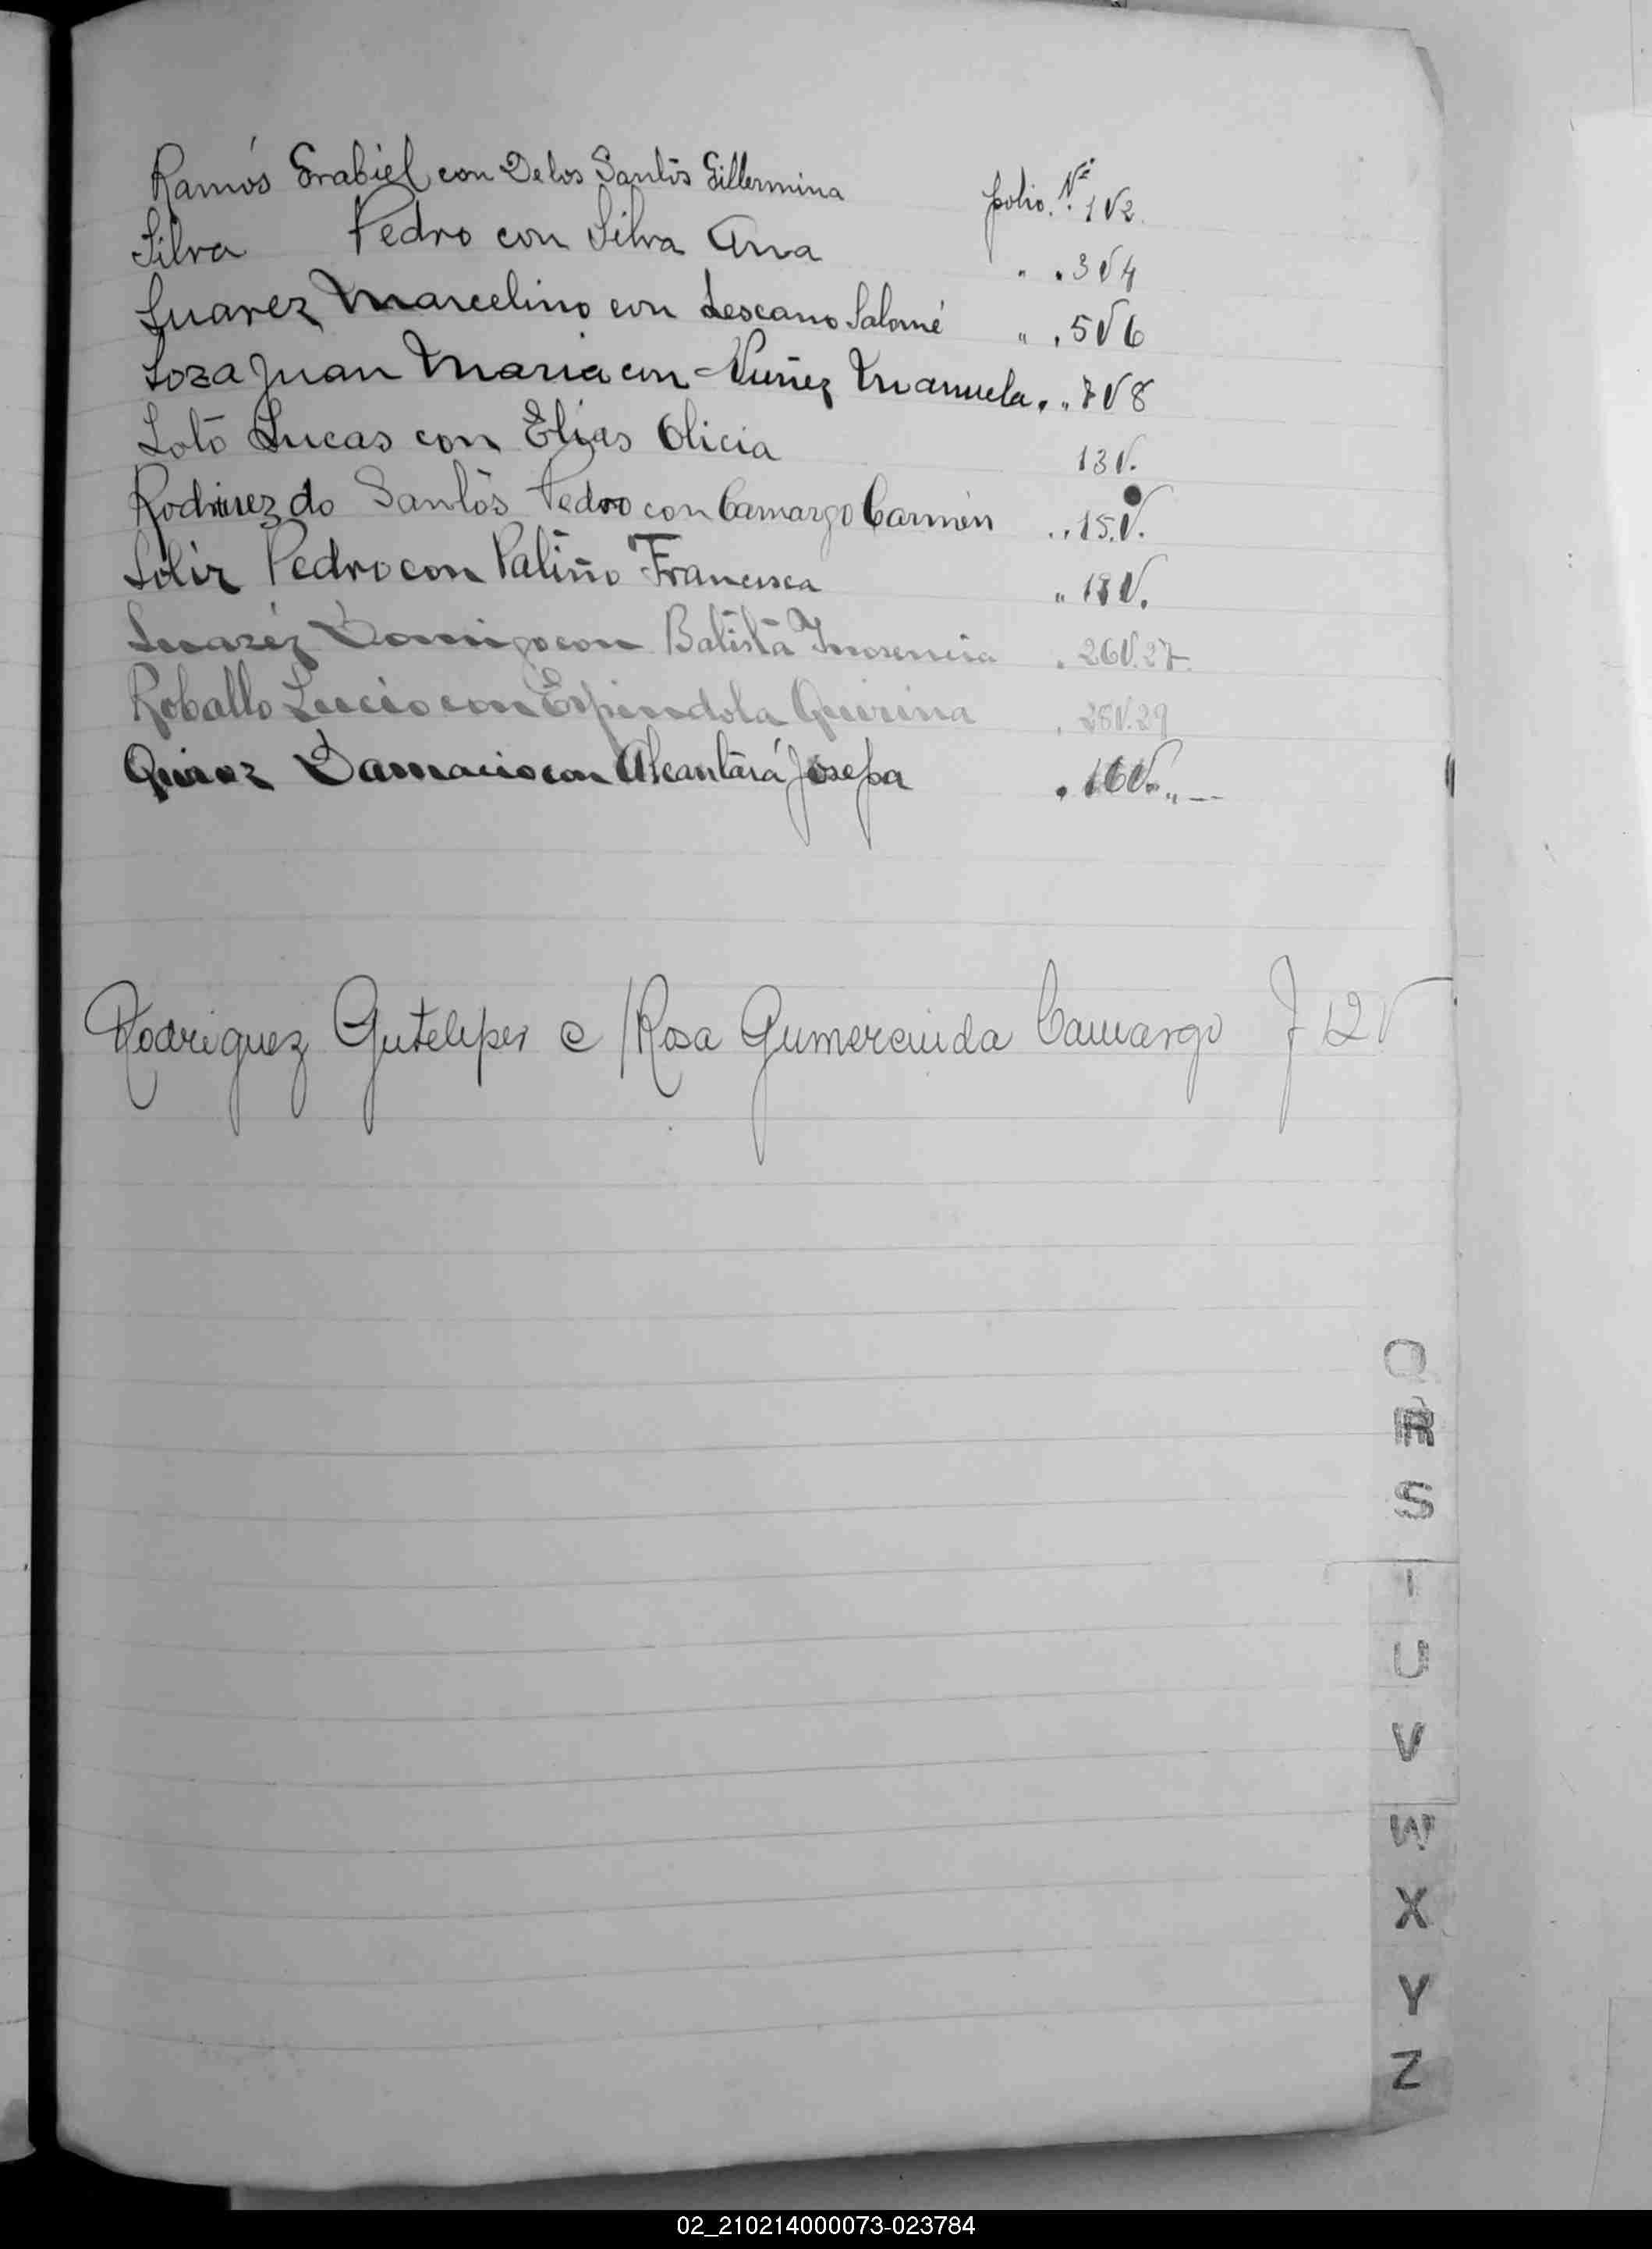 Ramós Grabiel con De los Santos Gillermina folio Nº 1 V 2
Silva Pedro con Silva Ana " . 3 V 4
Suarez Marcelino con Lescano Salomé " . 5 V 6
Soza Juan Maria con Nuñez Manuela . " 7 V 8
Soto Lucas con Elias Olicia 13 V.
do Santos Pedro con Camargo Carmen . . 15. V.
Solir Pedro con Patiño Francisca " 18 V.
Suarez Domigo con Batista Inosencia . 26 V. 27.
Roballo Lucio con Espindola Quirina . 28 V. 29
Quiroz Damacio con Alcantará Josefa . 16 V. " —
Rodriguez Gutelper c/ Rosa Gumercinda Camargo F 12 V
Q
R
S
T
U
V
W
X
Y
Z
02_210214000073-023784